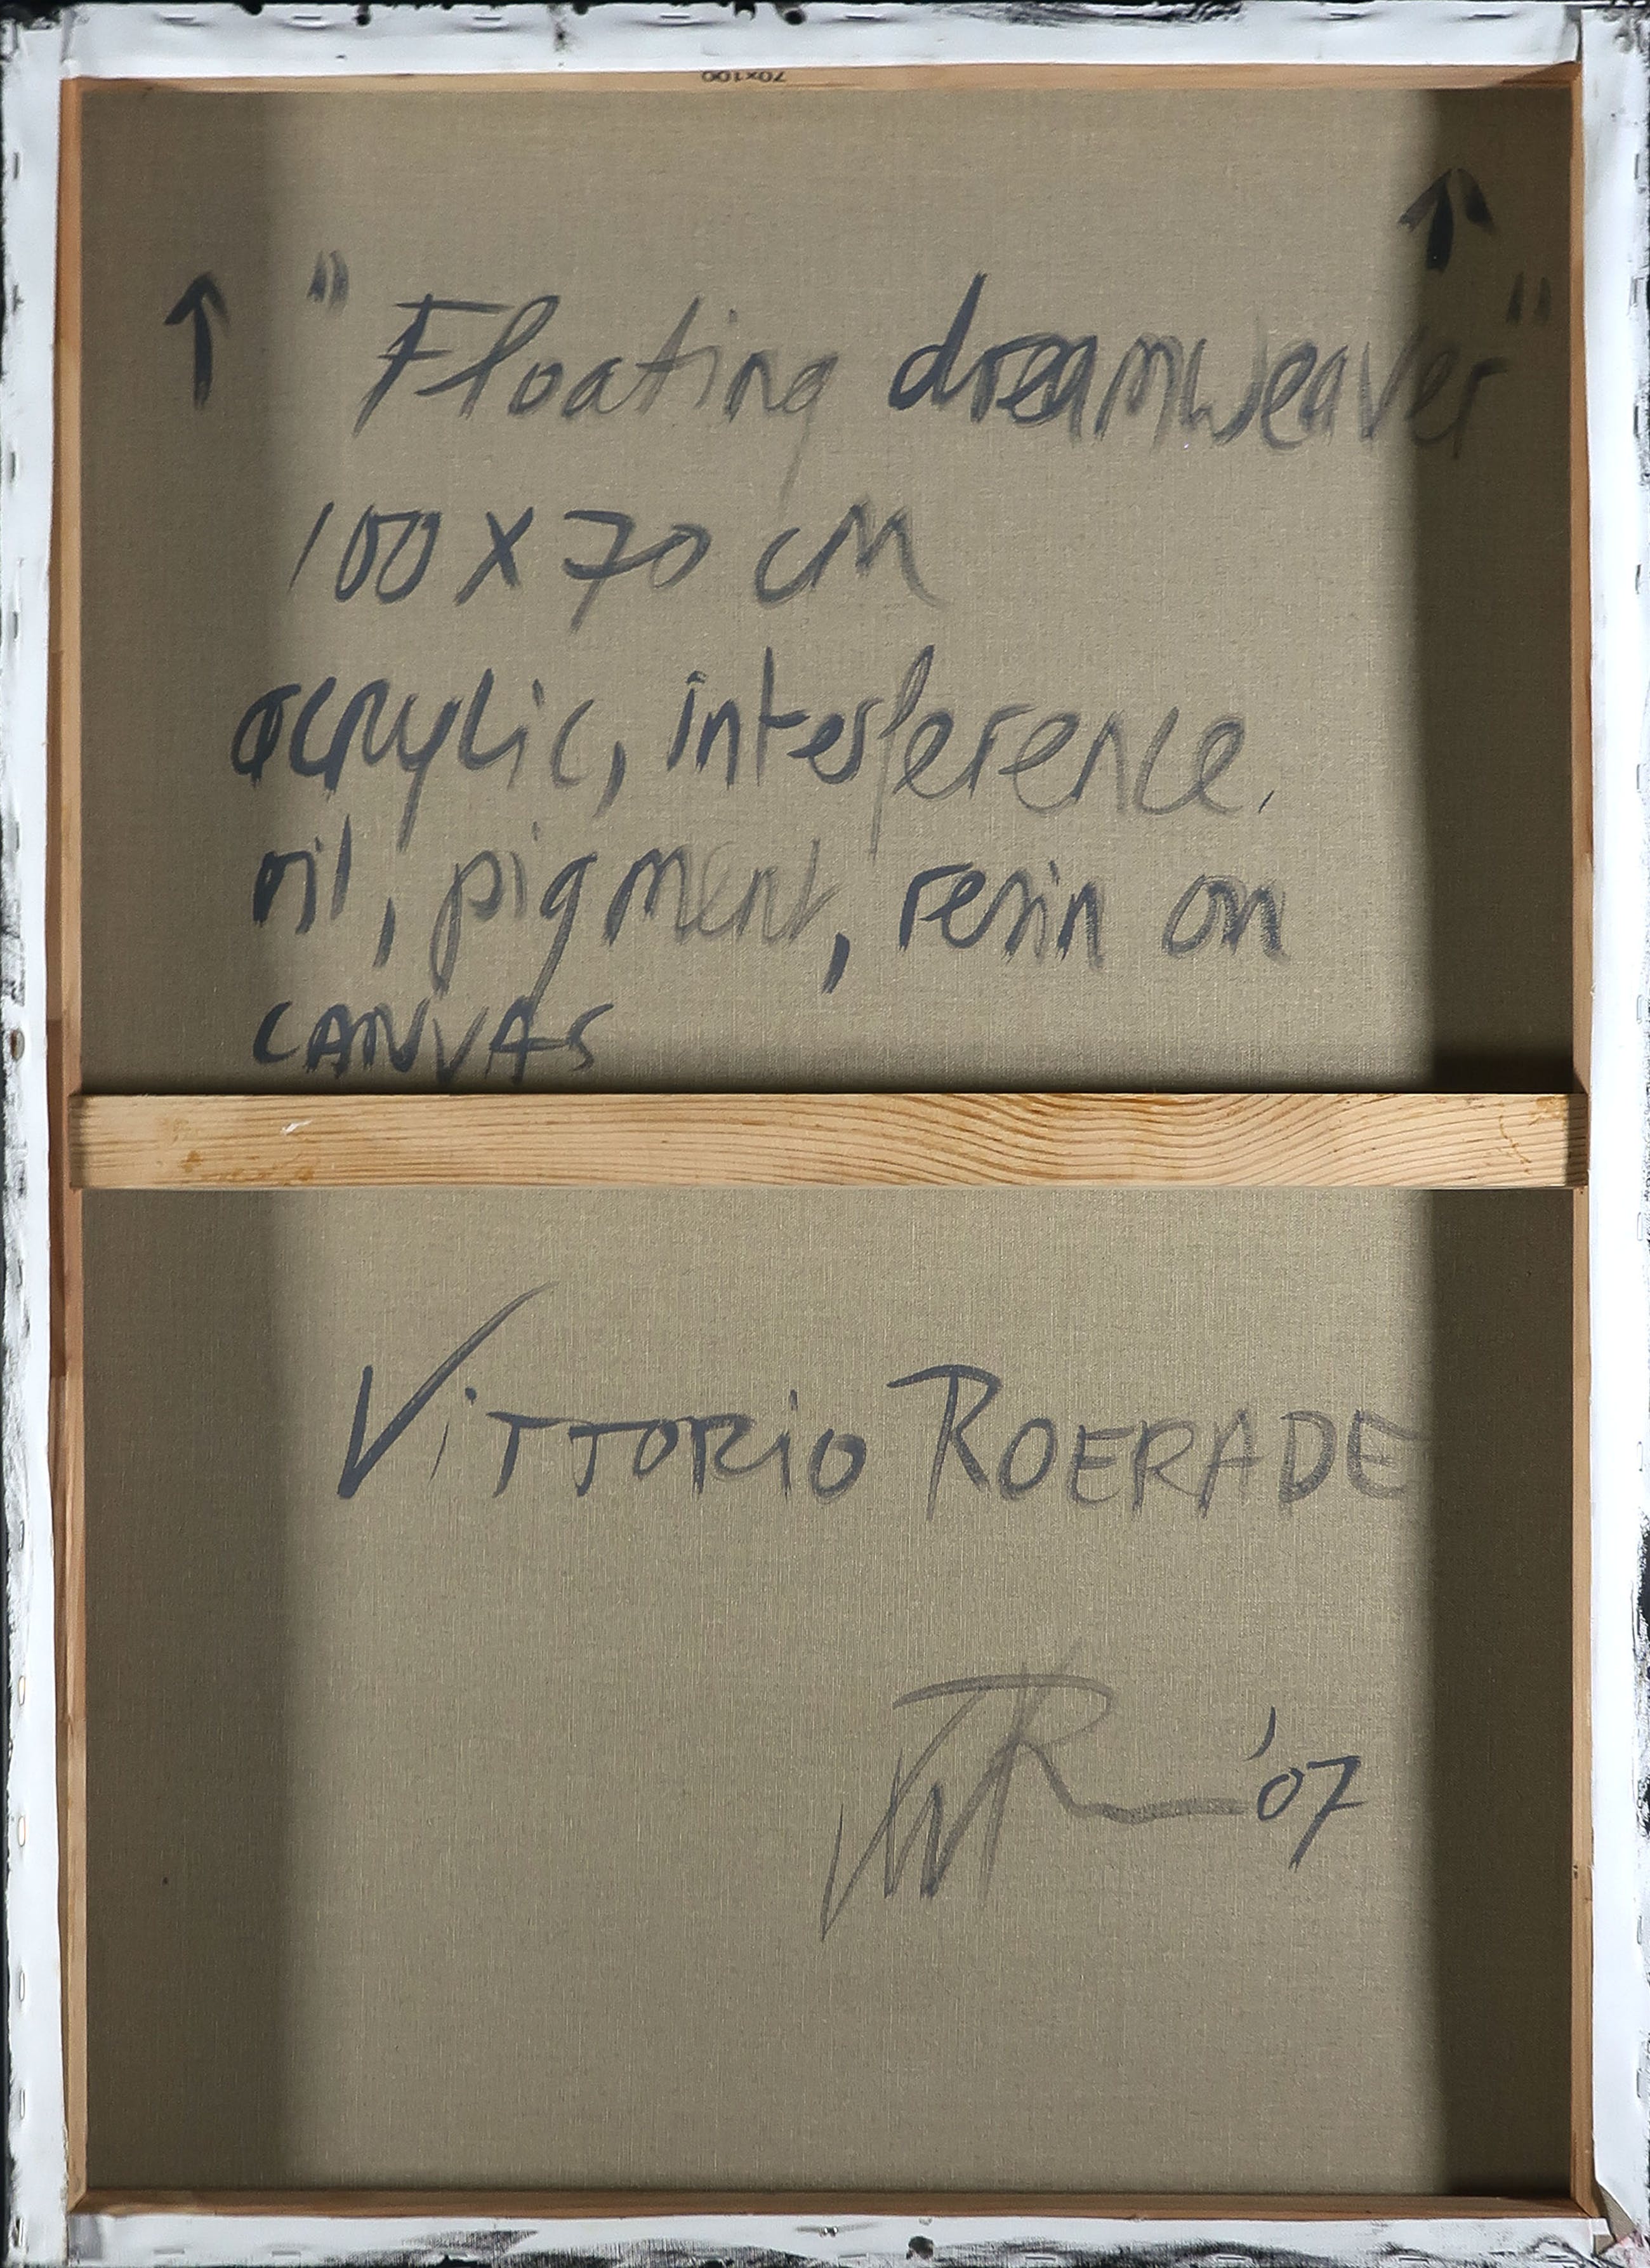 70x100
↑ "Floating dreamweaver" ↑
100 X 70 cm
acrylic, interference,
oil, pigment, resin on
CANVAS
ViTTORiO ROERADE
VR '07